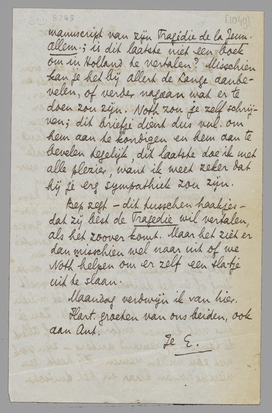 manuscript van zijn Tragédie de la Jeun.
allem.; is dit laatste niet een boek
om in Holland te vertalen? Misschien
kan je het bij Allert de Lange aanbe-
velen, of verder nagaan wat er te
doen zou zijn. Noth zou je zelf schrij-
ven; dit briefje dient dus vnl. om
hem aan te kondigen en hem aan te
bevelen tegelijk, dit laatste doe ik met
alle plezier, want ik weet zeker dat
hij je erg sympathiek zou zijn.
Bep zegt – dit tusschen haakjes –
dat zij best de Tragedie wil vertalen,
als het zoover komt. Maar het ziet er
dan misschien wel naar uit of we
Noth helpen om er zelf een slaatje
uit te slaan.
Maandag verdwijn ik van hier.
Hart. groeten van ons beiden, ook
aan Ant.
Je E.